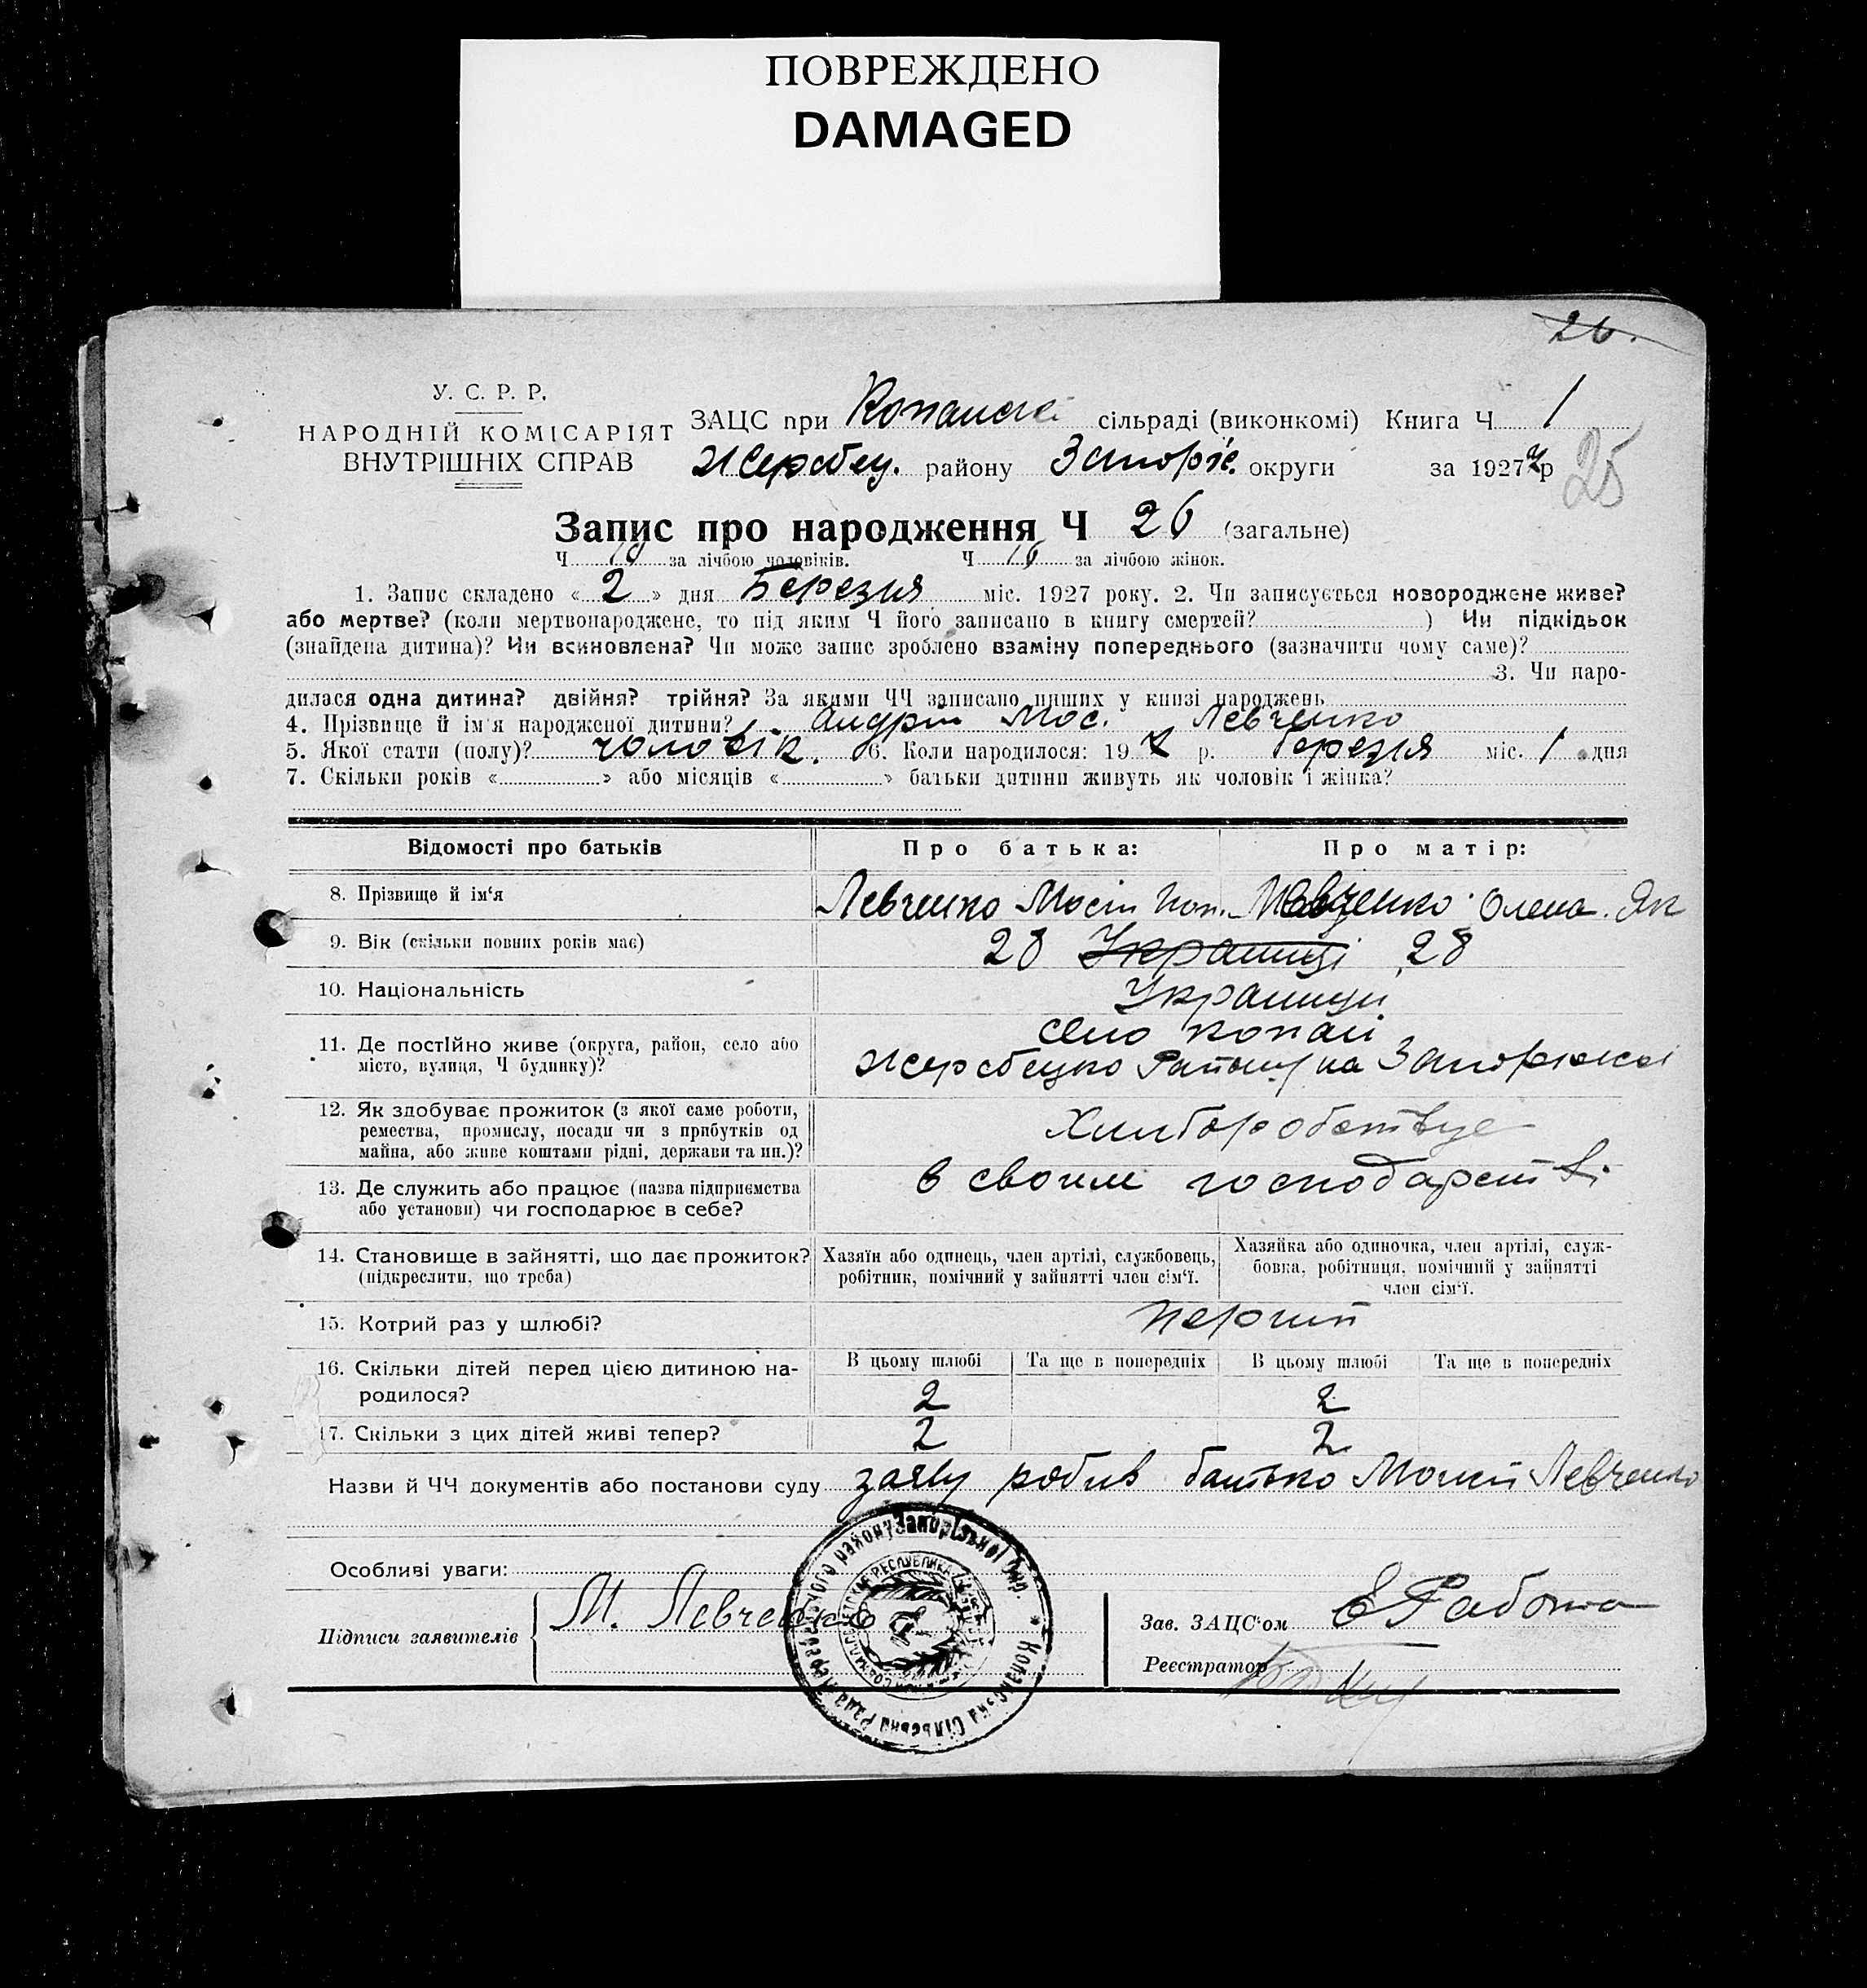 ПОВРЕЖДЕНО
DAMAGED
26.
У. С. Р. Р.
НАРОДНІЙ КОМІСАРІЯТ
ВНУТРІШНІХ СПРАВ
ЗАЦС при Копанскі сільраді (виконкомі) Книга Ч 1
Жеребец. району Запоріж. округи за 1927 р
25
Запис про народження Ч 26 (загальне)
Ч 10 за лічбою чоловіків. Ч 16 за лічбою жінок.
1. Запис складено « 2 » дня Березня міс. 1927 року. 2. Чи записується новороджене живе?
або мертве? (коли мертвонароджене, то під яким Ч його записано в книгу смертей? ) Чи підкідьок
(знайдена дитина)? Чи всиновлена? Чи може запис зроблено взаміну попереднього (зазначити чому саме)?
3. Чи наро-
дилася одна дитина? двійня? трійня? За якими ЧЧ записано инших у книзі народжень
4. Прізвище й ім'я народженої дитини? Андрій Мос. Левченко
5. Якої стати (полу)? чоловік. 6. Коли народилося: 19 р. березня міс. 1 дня
7. Скільки років « » або місяців « » батьки дитини живуть як чоловік і жінка?
Відомості про батьків Про батька: Про матір:
8. Прізвище й ім'я Левченко Мосій Левченко Олена Як
9. Вік (скільки повних років має) 28 Українці 28
10. Національність Українци
11. Де постійно живе (округа, район, село або
місто, вулиця, Ч будинку)?
село копані
Жеребецко Району на Запоріжжі
12. Як здобуває прожиток (з якої саме роботи,
ремества, промислу, посади чи з прибутків од
майна, або живе коштами рідні, держави та ин.)?
Хлиборобствує
13. Де служить або працює (назва підприємства
або установи) чи господарює в себе?
в своим господарстві
14. Становище в зайнятті, що дає прожиток?
(підкреслити, що треба)
Хазяїн або одинець, член артілі, службовець,
робітник, помічний у зайнятті член сім'ї.
Хазяйка або одиночка, член артілі, служ-
бовка, робітниця, помічний у зайнятті
член сім'ї.
15. Котрий раз у шлюбі? перший
16. Скільки дітей перед цією дитиною на-
родилося?
В цьому шлюбі Та ще в попередніх В цьому шлюбі Та ще в попередніх
2 2
17. Скільки з цих дітей живі тепер? 2 2
Назви й ЧЧ документів або постанови суду заяву робив батько Мосий Левченко
Особливі уваги:
Підписи заявителів М. Левченко
Зав. ЗАЦС'ом Е Работа
Реєстратор
Копанська Сільська Рада Жеребецького району Запорізької Окр.